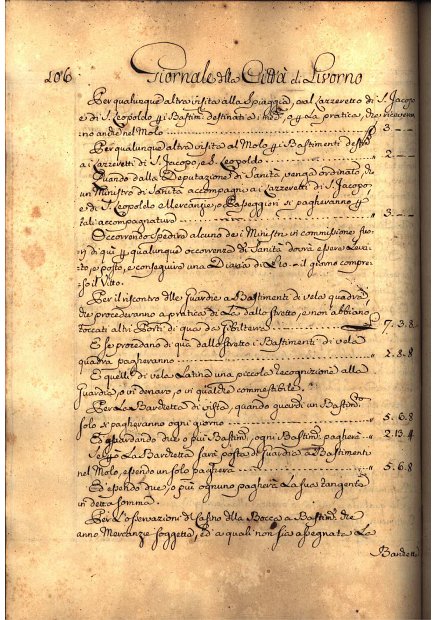 106 Giornale della Città di Livorno
Per qualunque altra visita alla Spiaggia, o al Lazzeretto di S. Jacopo
e di S. Leopoldo p. i Bastim. destinati a o p. La pratica, che ricevera
no anche nel Molo 3 —
Per qualunque altra visita al Molo p. i Bastimenti
ai Lazzeretti di S. Jacopo, e S. Leopoldo 2 —
Quando dalla Deputazione di Sanità venga ordinato, che
un Ministro di Sanità accompagni a i Lazzeretti di S. Jacopo
e di S. Leopoldo Mercanzie, o Passeggieri si pagheranno p.
tali accompagnature 3 —
Occorrendo spedire alcuno de i Ministri in commissione fuo
ri di quà p. qualunque occorrenza di Sanità dovrà essere
to, e posto, e conseguirà una Diaria di il giorno compre
so il Vitto.
Per il riscontro delle Guardie a Bastimenti di vela quadra
che procederanno a pratica di La dallo stretto, e non abbiano
toccati altri Porti di quà da Gibilterra 7. 3. 8
E se procedano di quà dallo stretto i Bastimenti di vela
quadra pagheranno 2. 8. 8
E quelli di vela Latina una piccola recognizione alla
Guardia, o in denaro, o in qualche commestibile.
Per La Barchetta di vista, quando guardi un Bastim.
solo si pagheranno ogni giorno 5. 6. 8
E guardando due, o più Bastim. ogni Bastim. pagherà 2. 13. 4
Se p. La Barchetta sarà posta di Guardia a Bastimenti
nel Molo, essendo un solo pagherà 5. 6. 8
Ed essendo due, o più ognuno pagherà La sua tangente
in detta somma.
Per L'osservazioni del Casino della Bocca a Bastim. che
anno Mercanzie soggette, ed a i quali non sia assegnata La
Barchett